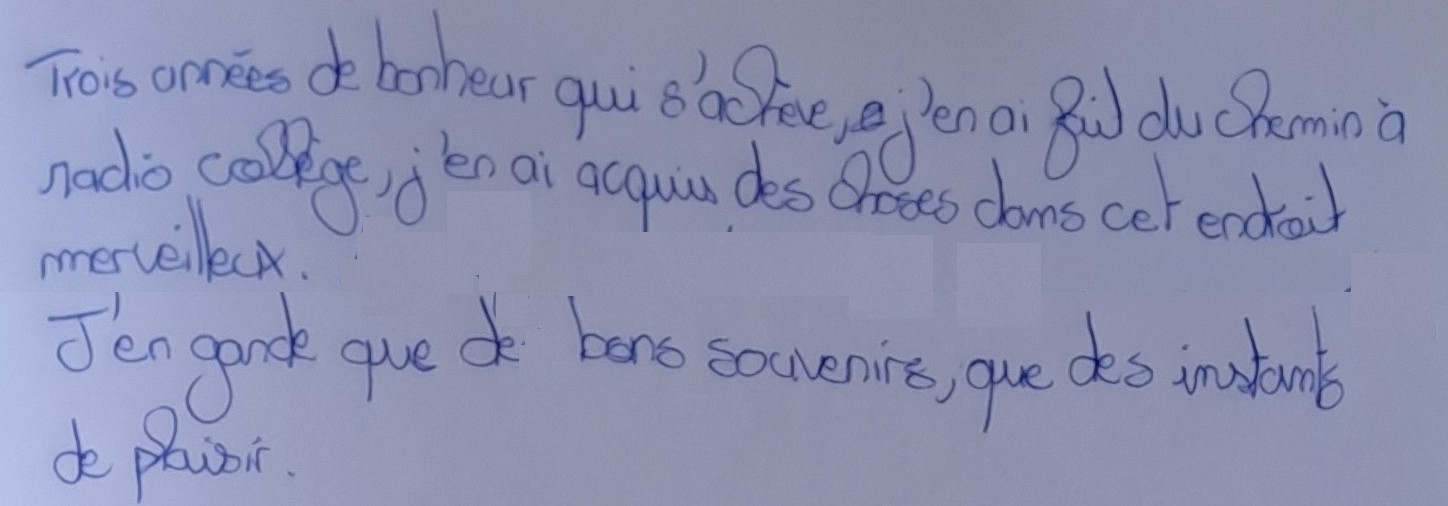 Trois années de bonheur qui s'achève, j'en ai fait du chemin à
radio collège, j'en ai acquis des choses dans cet endroit
merveilleux.
J'en garde que de bons souvenirs, que des instants
de plaisir.